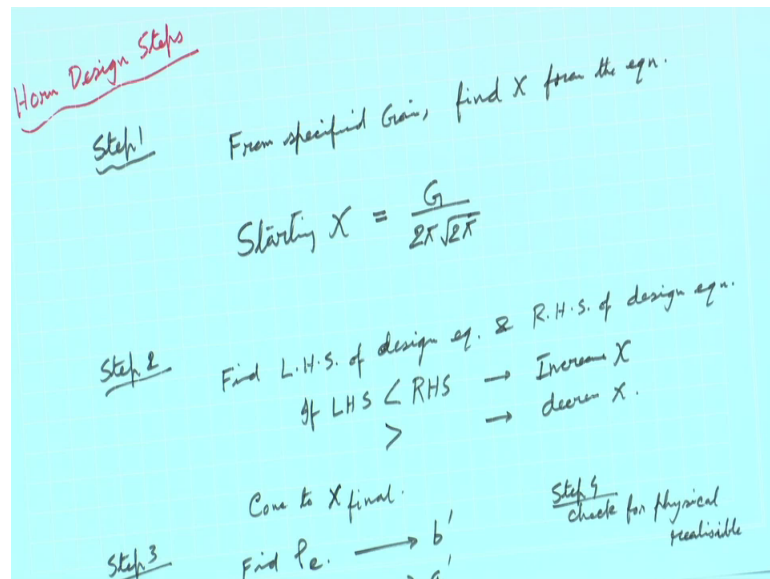 Horn Design Steps
Step 1 From specified Gain, find X from the eqn.
Starting X = G / 2π√2π
Step 2 Find L.H.S. of design eq. & R.H.S. of design eqn.
If LHS < RHS → Increase X
> → decrease X.
Come to X final.
Step 3 Find ρe. → b'
→ a'
Step 4
check for physical
realisible